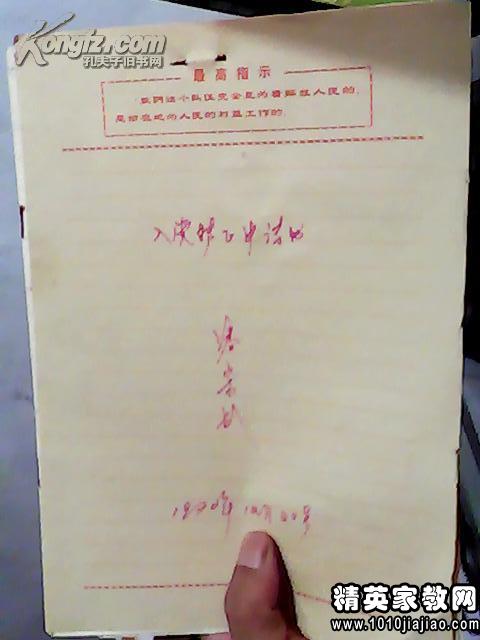 Kongfz.com
孔夫子旧书网
最高指示
我们这个队伍完全是为着解放人民的，
是彻底地为人民的利益工作的。
入党转正申请书
1970年10月20号
精英家教网
www.1010jiajiao.com